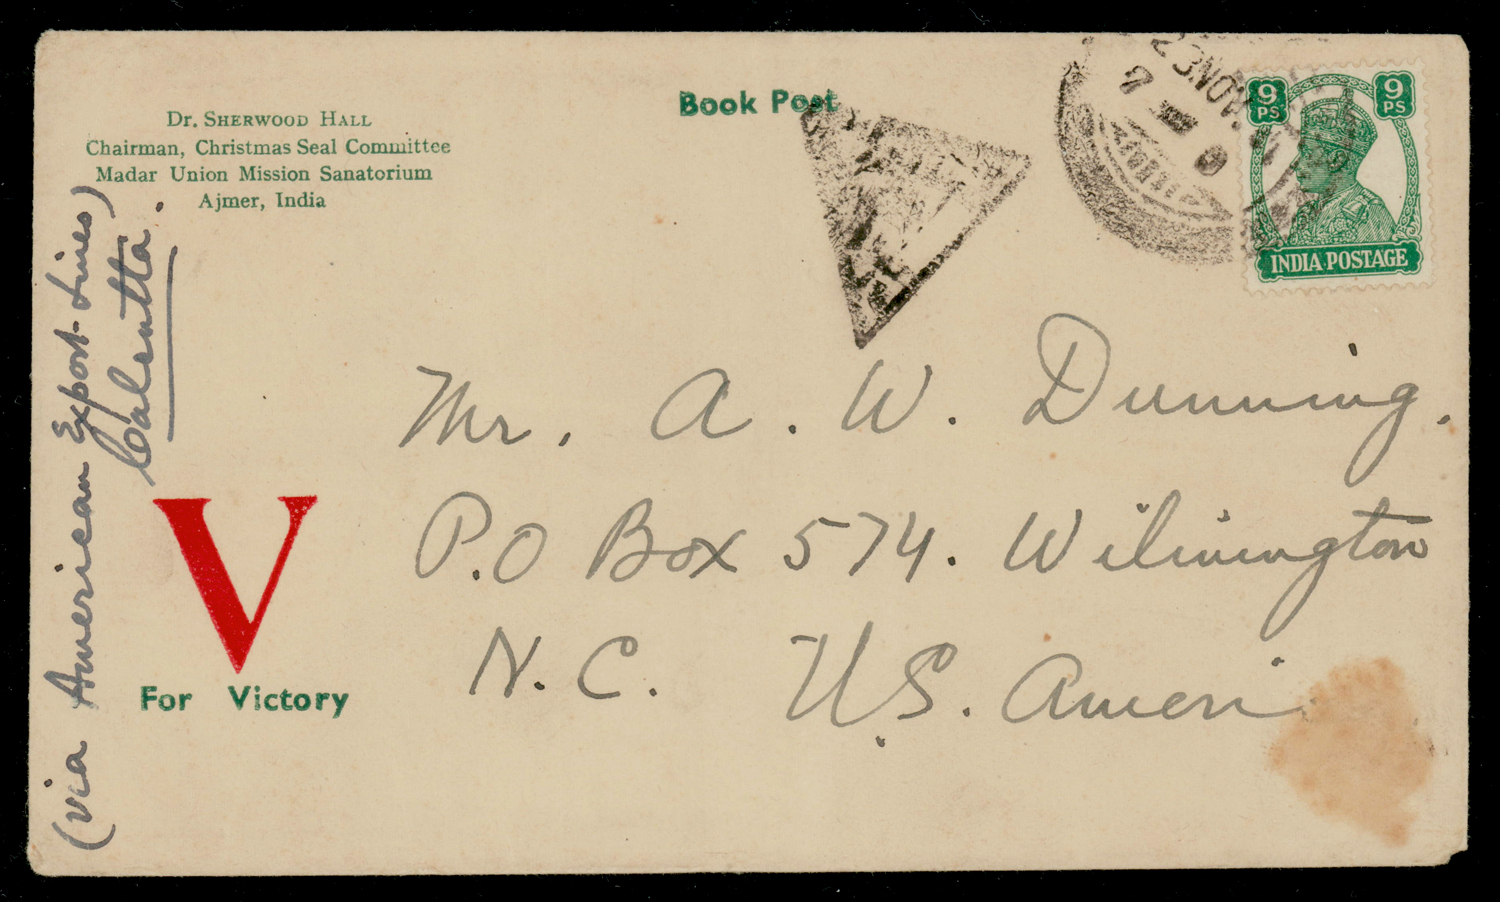 Dr. Sherwood Hall
Chairman, Christmas Seal Committee
Madar Union Mission Sanatorium
Ajmer, India
Book Post
23 NOV.
9 PS
9 PS
INDIA POSTAGE
(via American Export Lines)
Calcutta.
Mr. A. W. Dunning.
P.O Box 574. Wilmington
N. C. U.S. Ameri
V
For Victory